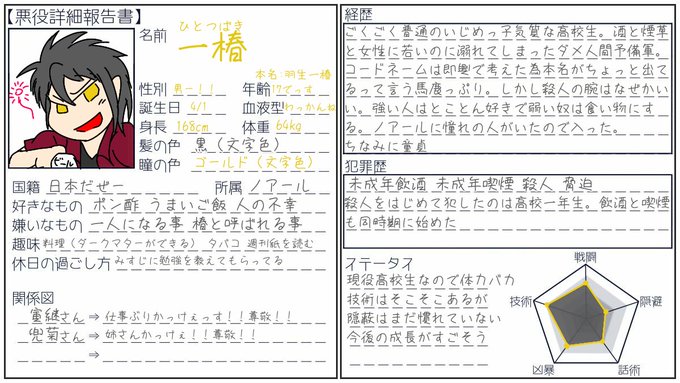 【悪役詳細報告書】
名前
ひとつばき
一椿
本名 羽生一椿
性別 男ー!!
年齢 17でっす
誕生日 4/1
血液型 わっかんね
身長 168cm
体重 64kg
髪の色 黒(文字色)
瞳の色 ゴールド(文字色)
ビール
国籍 日本だぜー
所属 ノアール
好きなもの ポン酢 うまいご飯 人の不幸
嫌いなもの 一人になる事 椿と呼ばれる事
趣味 料理(ダークマターができる) タバコ 週刊紙を読む
休日の過ごし方 みすじに勉強を教えてもらってる
関係図
寅継さん ⇒ 仕事ぶりかっけぇっす!!尊敬!!
兜菊さん ⇒ 姉さんかっけぇ!!尊敬!!
⇒
経歴
ごくごく普通のいじめっ子気質な高校生。酒と煙草
と女性に若いのに溺れてしまったダメ人間予備軍。
コードネームは即興で考えた為本名がちょっと出て
るって言う馬鹿っぷり。しかし殺人の腕はなぜかい
い。強い人はとことん好きで弱い奴は食い物にす
る。ノアールに憧れの人がいたので入った。
ちなみに童貞
犯罪歴
未成年飲酒 未成年喫煙 殺人 脅迫
殺人をはじめて犯したのは高校一年生。飲酒と喫煙
も同時期に始めた
イテータイス
現役高校生なので体力バカ
技術はそこそこあるが
隠蔽はまだ慣れていない
今後の成長がすごそう
戦闘
隠避
話術
凶暴
技術